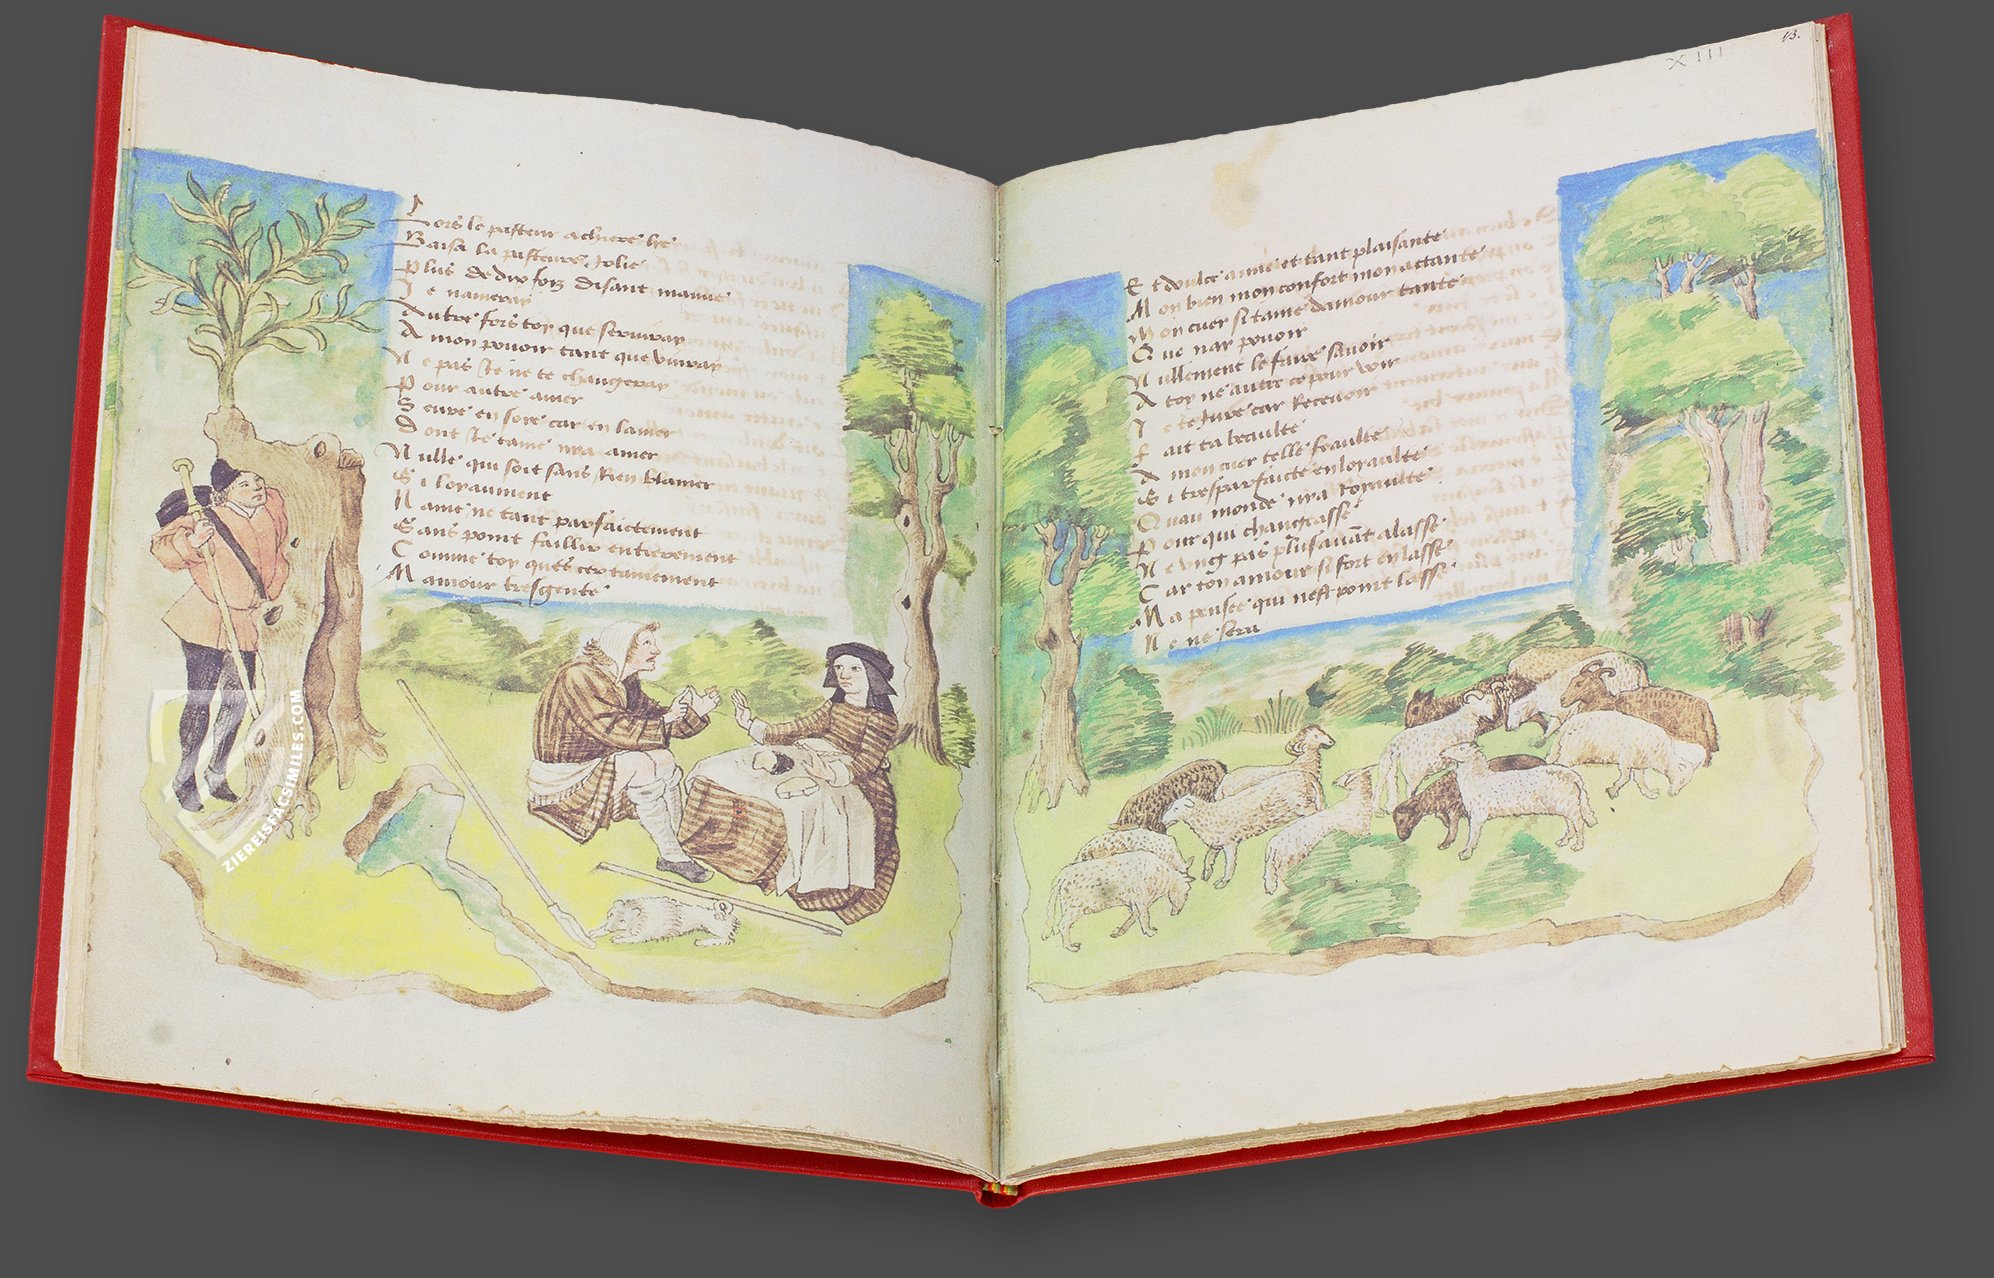 Lors le pasteur a chiere lie
Baisa la pasteure Jolie
Plus de dix fois disant mamie
Je nameray
Autre fors toy que serviray
A mon povoir tant que vivray
Ne pas Je ne te changeray
Pour autre amer
Seure en soies car en lamer
Dont Je tame nya amer
Nulle qui soit sans Rien blamer
Si loyaument
Name ne tant parfaictement
Sans point faillir entierement
Comme toy ques certainement
Mamour tresgente
XIII
13.
Et doulce amie et tant plaisante
Mon bien mon confort mon actante
Mon cuer si tame damour tante
Que nay povoir
Nullement le faire savoir
A toy ne autre ce pour voir
Je te Jure car Recevoir
Fait ta beaulte
A mon cuer telle feaulte
Si tresparfaicte en loyaulte
Quau monde nya Royaulte
Pour qui changeasse
Ne ung pas plus avant alasse
Car ton amour si fort enlasse
Ma pensee qui nest point lasse
Ne ne sera
ZIEREISFACSIMILES.COM